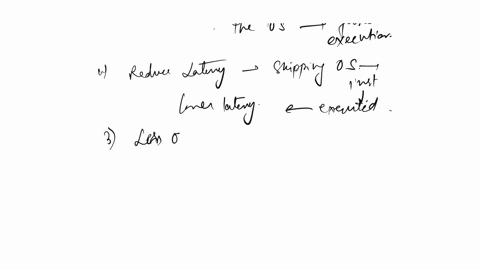 The OS →
execution.
2) Reduce Latency → Skipping OS →
inst
Lower latency. ← executed.
3) Less o